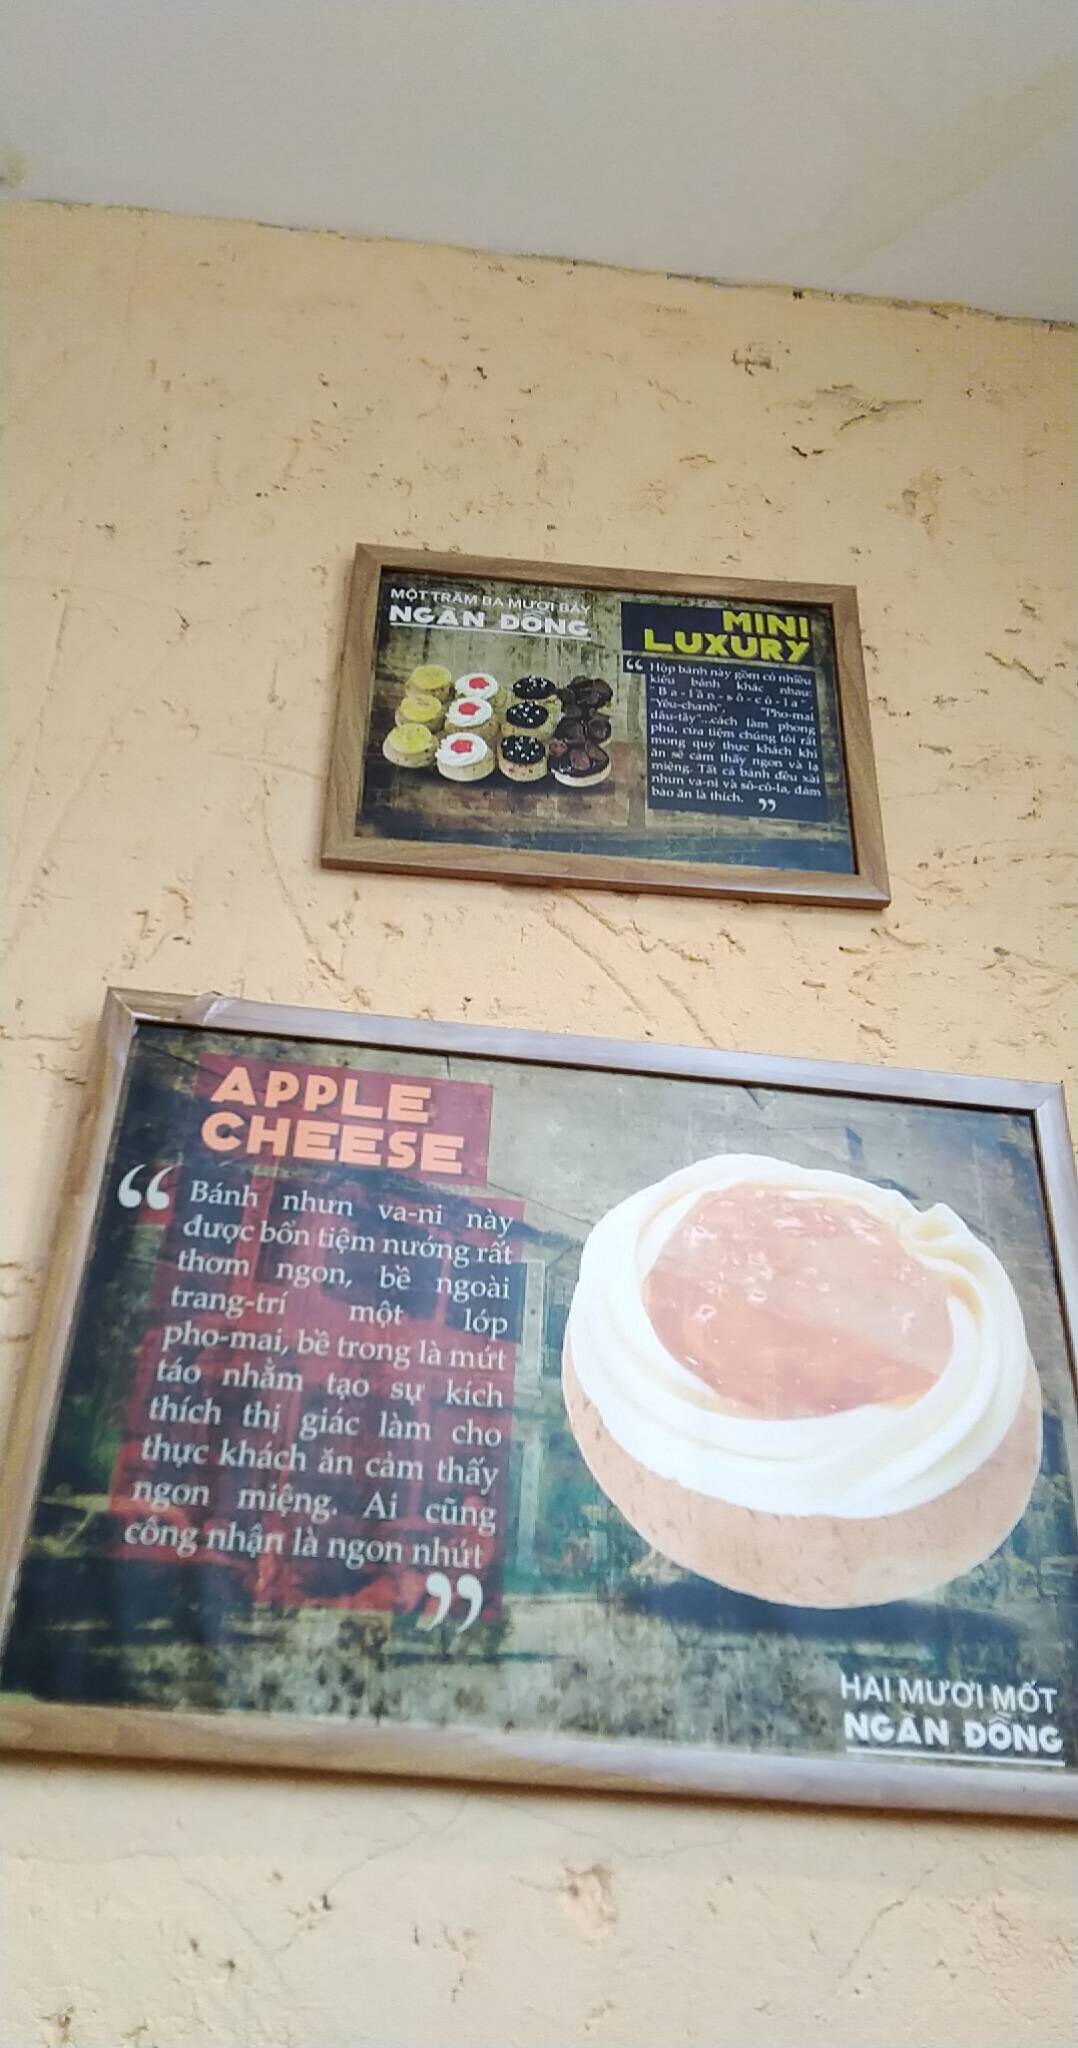 MỘT TRĂM BA MƯƠI BẢY
NGÀN ĐỒNG
MINI
LUXURY
“ Hộp bánh này gồm có nhiều
kiểu bánh khác nhau:
"Ba-lăn-sô-cô-la",
"Yêu-chanh", "Pho-mai
dâu-tây"...cách làm phong
phú, cửa tiệm chúng tôi rất
mong quý thực khách khi
ăn sẽ cảm thấy ngon và lạ
miệng. Tất cả bánh đều xài
nhưn va-ni và sô-cô-la, đảm
bảo ăn là thích. ”
APPLE
CHEESE
“ Bánh nhưn va-ni này
được bổn tiệm nướng rất
thơm ngon, bề ngoài
trang-trí một lớp
pho-mai, bề trong là mứt
táo nhằm tạo sự kích
thích thị giác làm cho
thực khách ăn cảm thấy
ngon miệng. Ai cũng
công nhận là ngon nhứt
”
HAI MƯƠI MỐT
NGÀN ĐỒNG